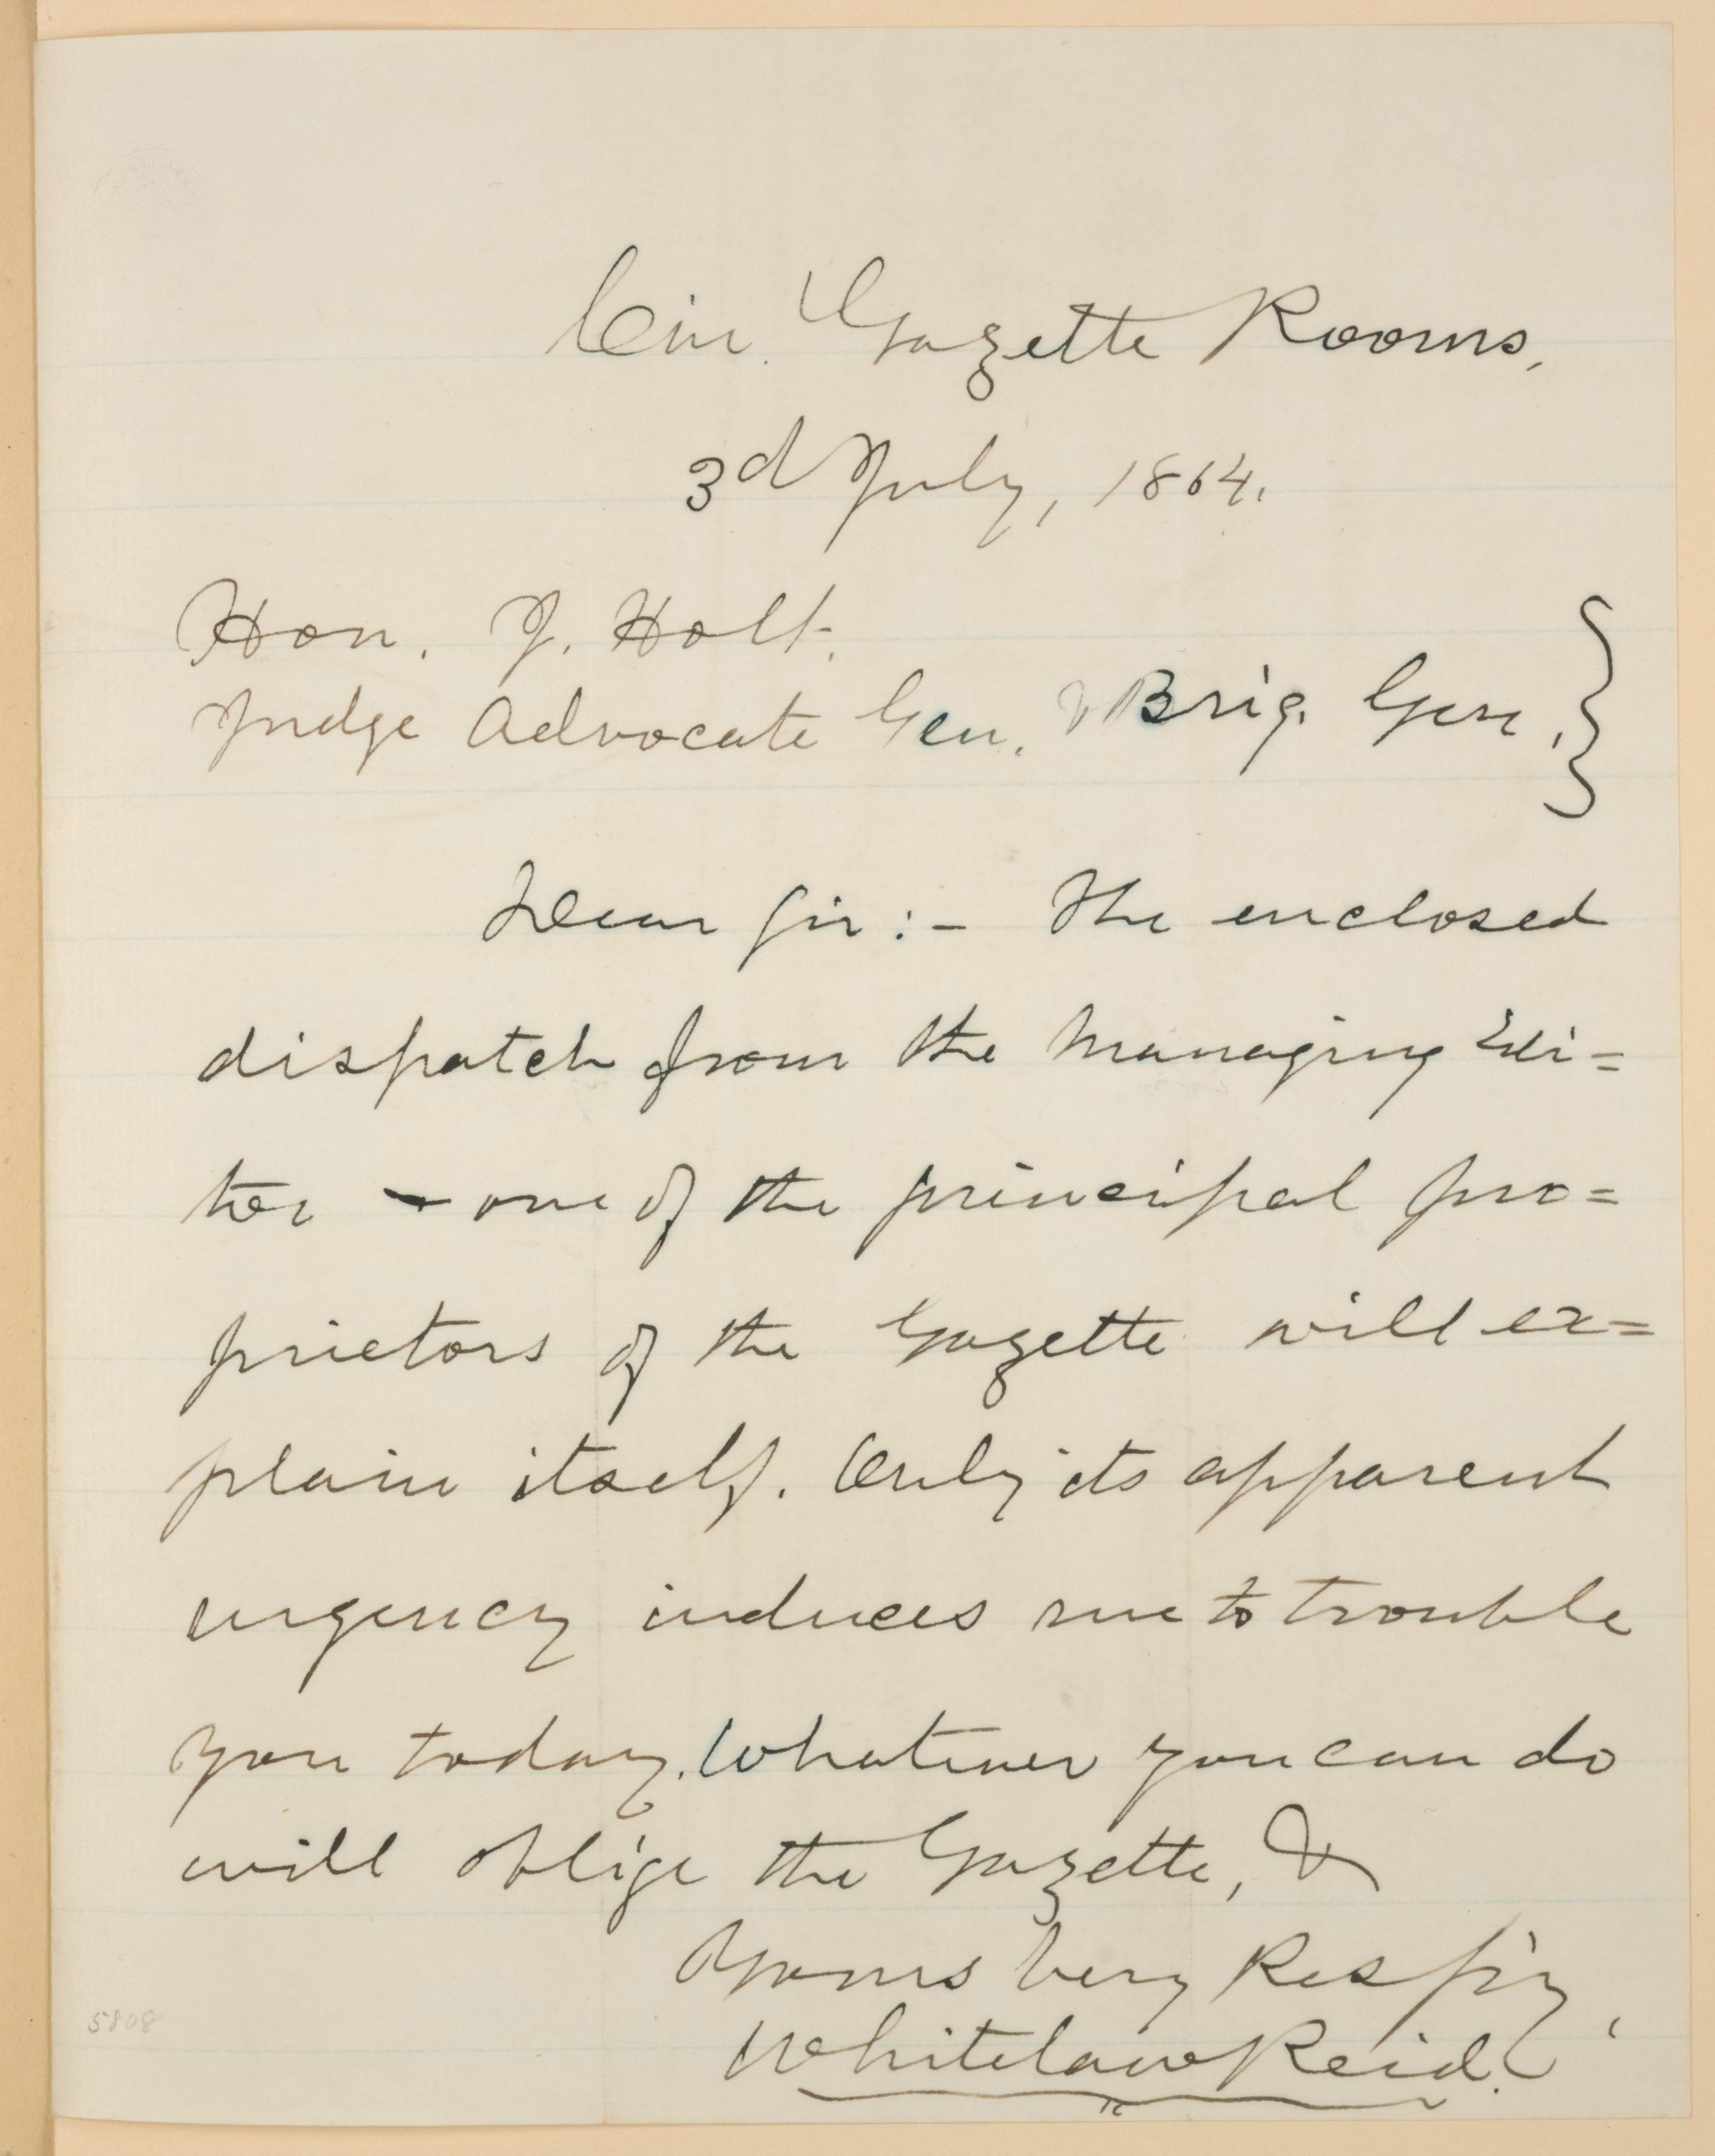 Cin. Gazette Rooms,
3d July, 1864.
Hon. J. Holt.
Judge Advocate Gen. & Brig. Gen.,
Dear Sir:- The enclosed
dispatch from the Managing Edi=
tor - one of the principal pro=
prietors of the Gazette will ex=
plain itself. Only its apparent
urgency induces me to trouble
you today. Whatever you can do
will oblige the Gazette, &
Yours Very Resp'y,
Whitelaw Reid.
5808